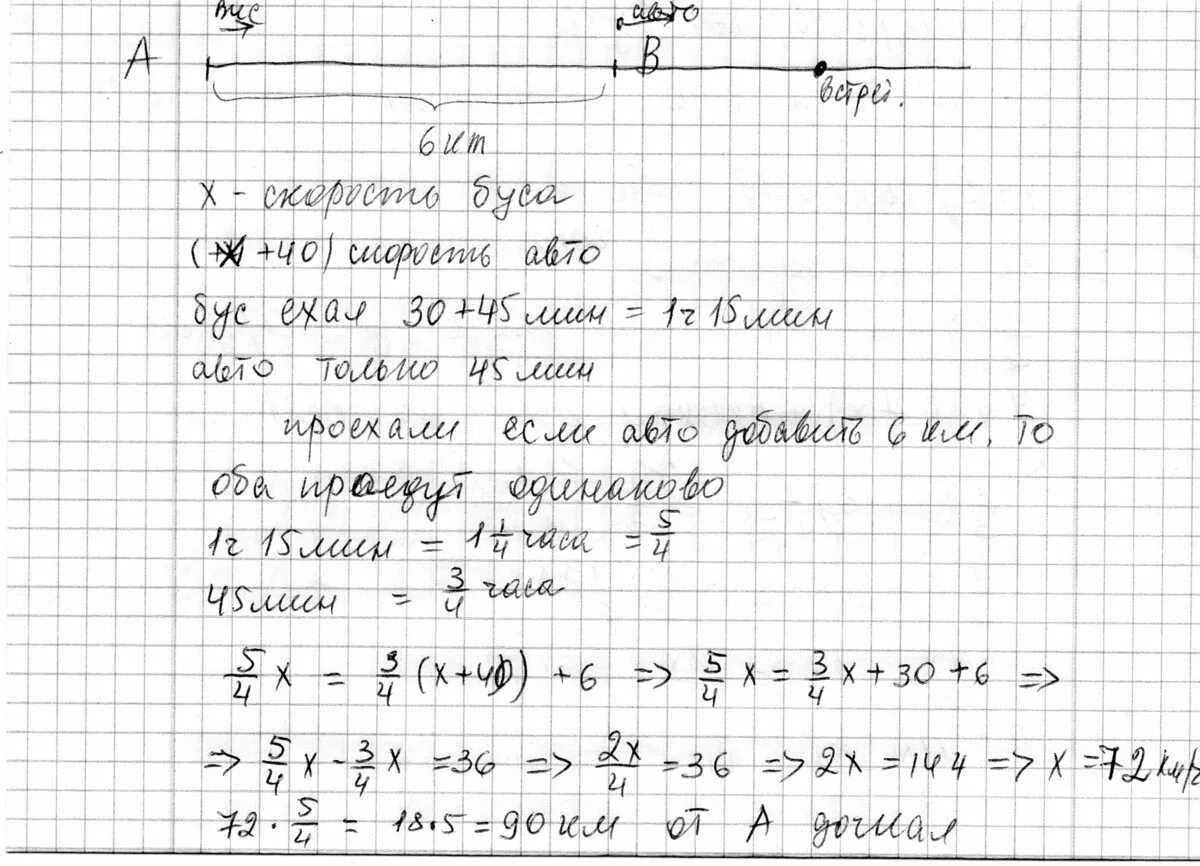 бус авто
A B
встреч.
6 км
x - скорость буса
(x +40) скорость авто
бус ехал 30+45 мин = 1ч 15 мин
авто только 45 мин
проехали если авто добавить 6 км, то
оба проедут одинаково
1ч 15 мин = 1 1/4 часа = 5/4
45 мин = 3/4 часа
5/4 x = 3/4 (x+40) + 6 => 5/4 x = 3/4 x + 30 + 6 =>
=> 5/4 x - 3/4 x = 36 => 2x/4 = 36 => 2x = 144 => x = 72 км/ч
72 · 5/4 = 18·5 = 90 км от A